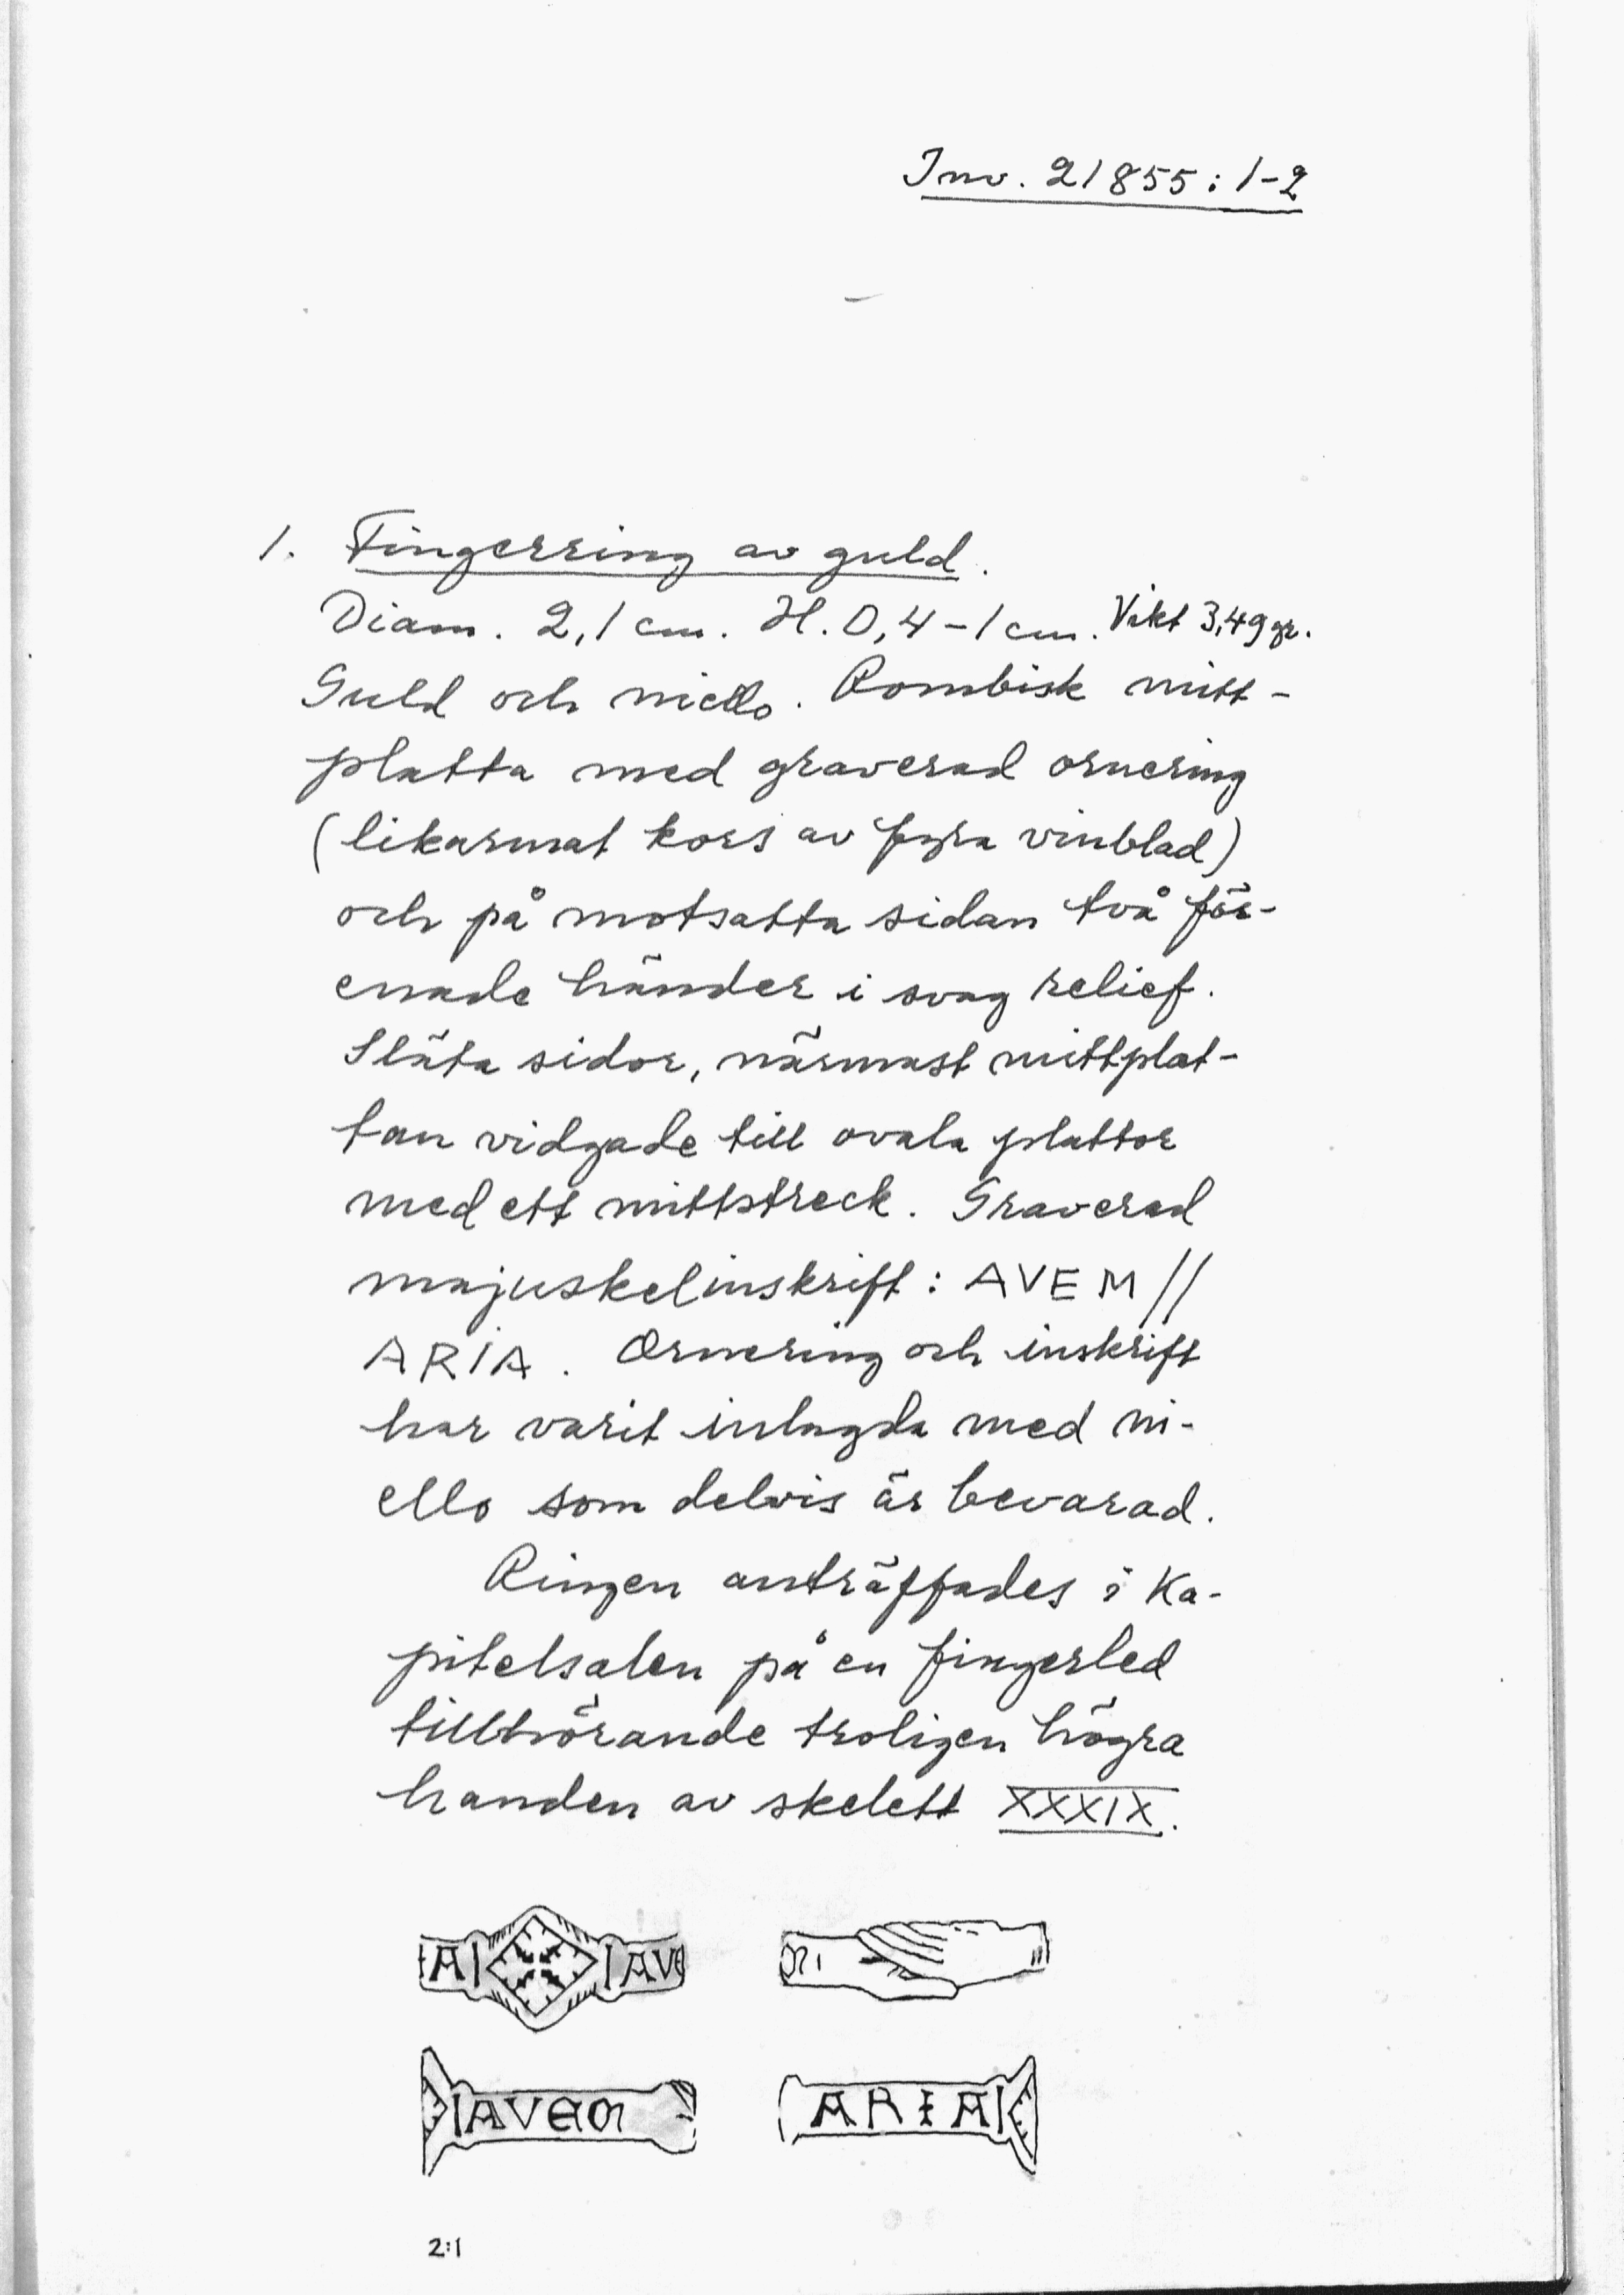 Inv. 21855:1-2
1. Fingerring av guld.
Diam. 2,1 cm. H. 0,4-1 cm. Vikt 3,49 gr.
Guld och niello. Rombisk mitt-
platta med graverad ornering
(likarmat kors av fyra vinblad)
och på motsatta sidan två för-
enade händer i svag relief.
Släta sidor, närmast mittplat-
tan vidgade till ovala plattor
med ett mittstreck. Graverad
majuskelinskrift: AVEM//
ARIA. Ornering och inskrift
har varit inlagda med ni-
ello som delvis är bevarad.
Ringen anträffades i Ka-
pitelsalen på en fingerled
tillhörande troligen högra
handen av skelett XXXIX.
A AVE
AVEM ARIA
2:1